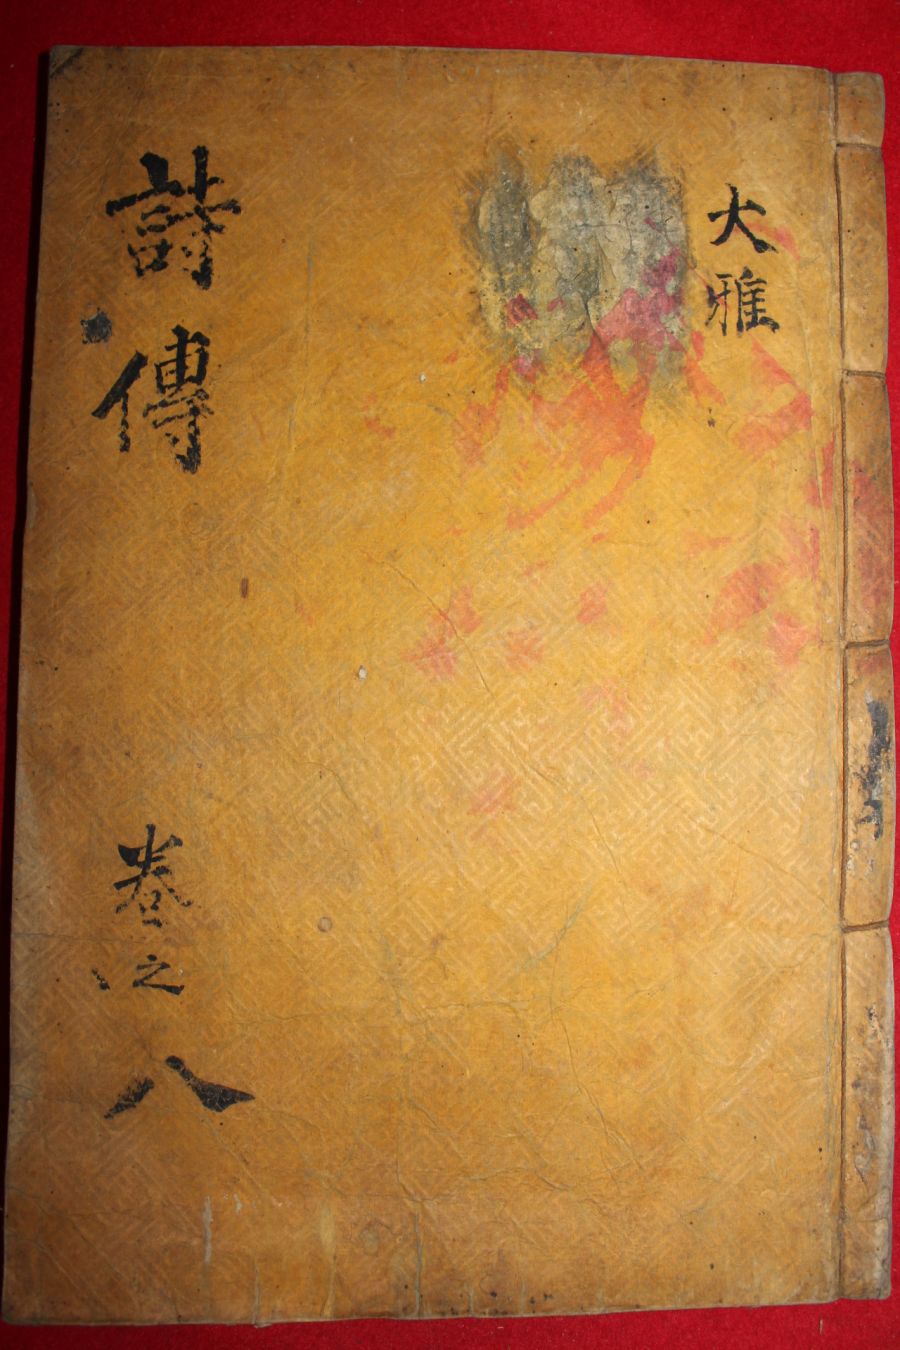 大雅
詩傳
卷之八